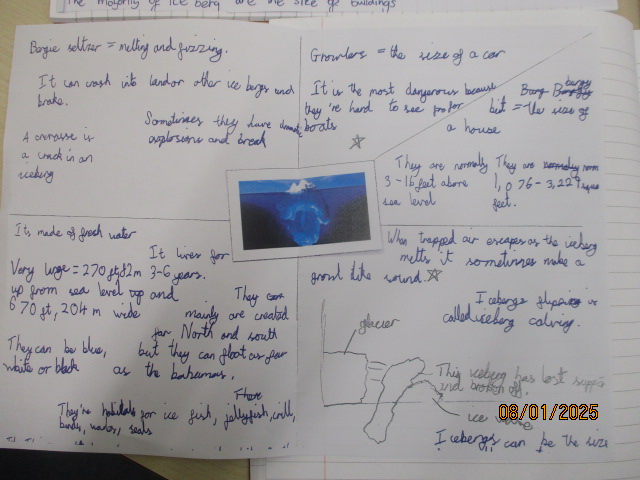 The majority of ice berg are the size of buildings
Bergie seltzer = melting and fizzing.
It can crash into land or other ice berges and
brake.
Sometimes they have
explosions and break
A crevasse is
a crack in an
iceberg
Growlers = the size of a car
It is the most dangerous because
they're hard to see for
boats
bergy
but = the size of
a house
They are normally
3-16 feet above
sea level
They are
feet.
Its made of fresh water
It lives for
3-6 years.
Very large = 270 ft, 82m
up from sea level top and
670 ft, 204 m wide
They
mainly are created
far North and south
They can be blue,
white or black
but they can float as far
as the bahamas.
They're habitats for ice fish, jellyfish, krill,
seals
When trapped air escapes as the iceberg
melts it sometimes make a
growl like sound.
Icebergs flipping is
called iceberg calving.
glacier
This iceberg has lost
and broken off.
ice
Icebergs can be the size
08/01/2025